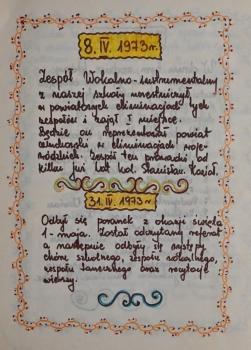 8. IV. 1973 r.
Zespół Wokalno-instrumentalny
z naszej szkoły uczestniczył
w powiatowych eliminacjach tych
zespołów i zajął I miejsce.
Będzie on reprezentował powiat
człuchowski w eliminacjach woje-
wódzkich. Zespół ten prowadzi od
kilku już lat kol. Stanisław
31. IV. 1973 r.
Odbył się poranek z okazji święta
1-maja. Został odczytany referat
a następnie odbyły się występy
chóru szkolnego, zespołu wokalnego,
zespołu tanecznego oraz recytacje
wierszy.